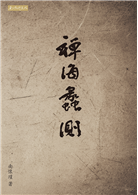 禪海蠡測
南懷瑾 著